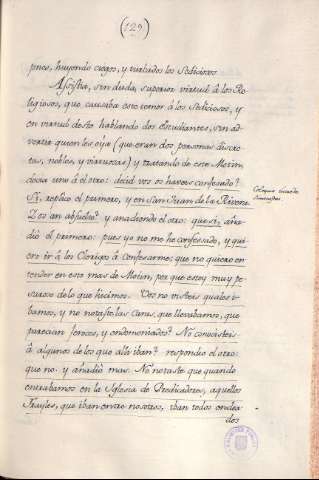 (129)
pnes, huyendo ciegos, y turbados los Sediciosos
Assistia, sin duda, superior virtud à los Re-
ligiosos, que causaba este temor à los Sediciosos, y
en virtud desto hablando dos Estudiantes, sin ad-
vertir quien les oìa (que eran dos personas discre-
tas, nobles, y virtuosas) y tratando de este Motin,
decia uno à el otro: decid vos os haveis confesado?
Si, replicó el primero, y en San Juan de la Rivera.
Y os an absuelto? y anadiendo el otro: que si, aña-
dió el primero: pues yo no me he confessado, y qui
ero ir à los Clerigos à Confesarme: que no quiero en
tender en esto mas de Motin, por que estoy muy pe-
saroso de lo que hicimos. Vos no visteis quales i-
bamos, y no notasteis las Caras, que llevabamos, que
parecian feroces, y endemoniados? No conocisteis
à algunos de los que alli iban? respondio el otro:
que no. y añadió mas. No notaste que quando
entrabamos en la Iglesia de Predicadores, aquellos
Frayles, que iban entre nosotros, iban todos rodea
dos
Coloquio
Estudiantes